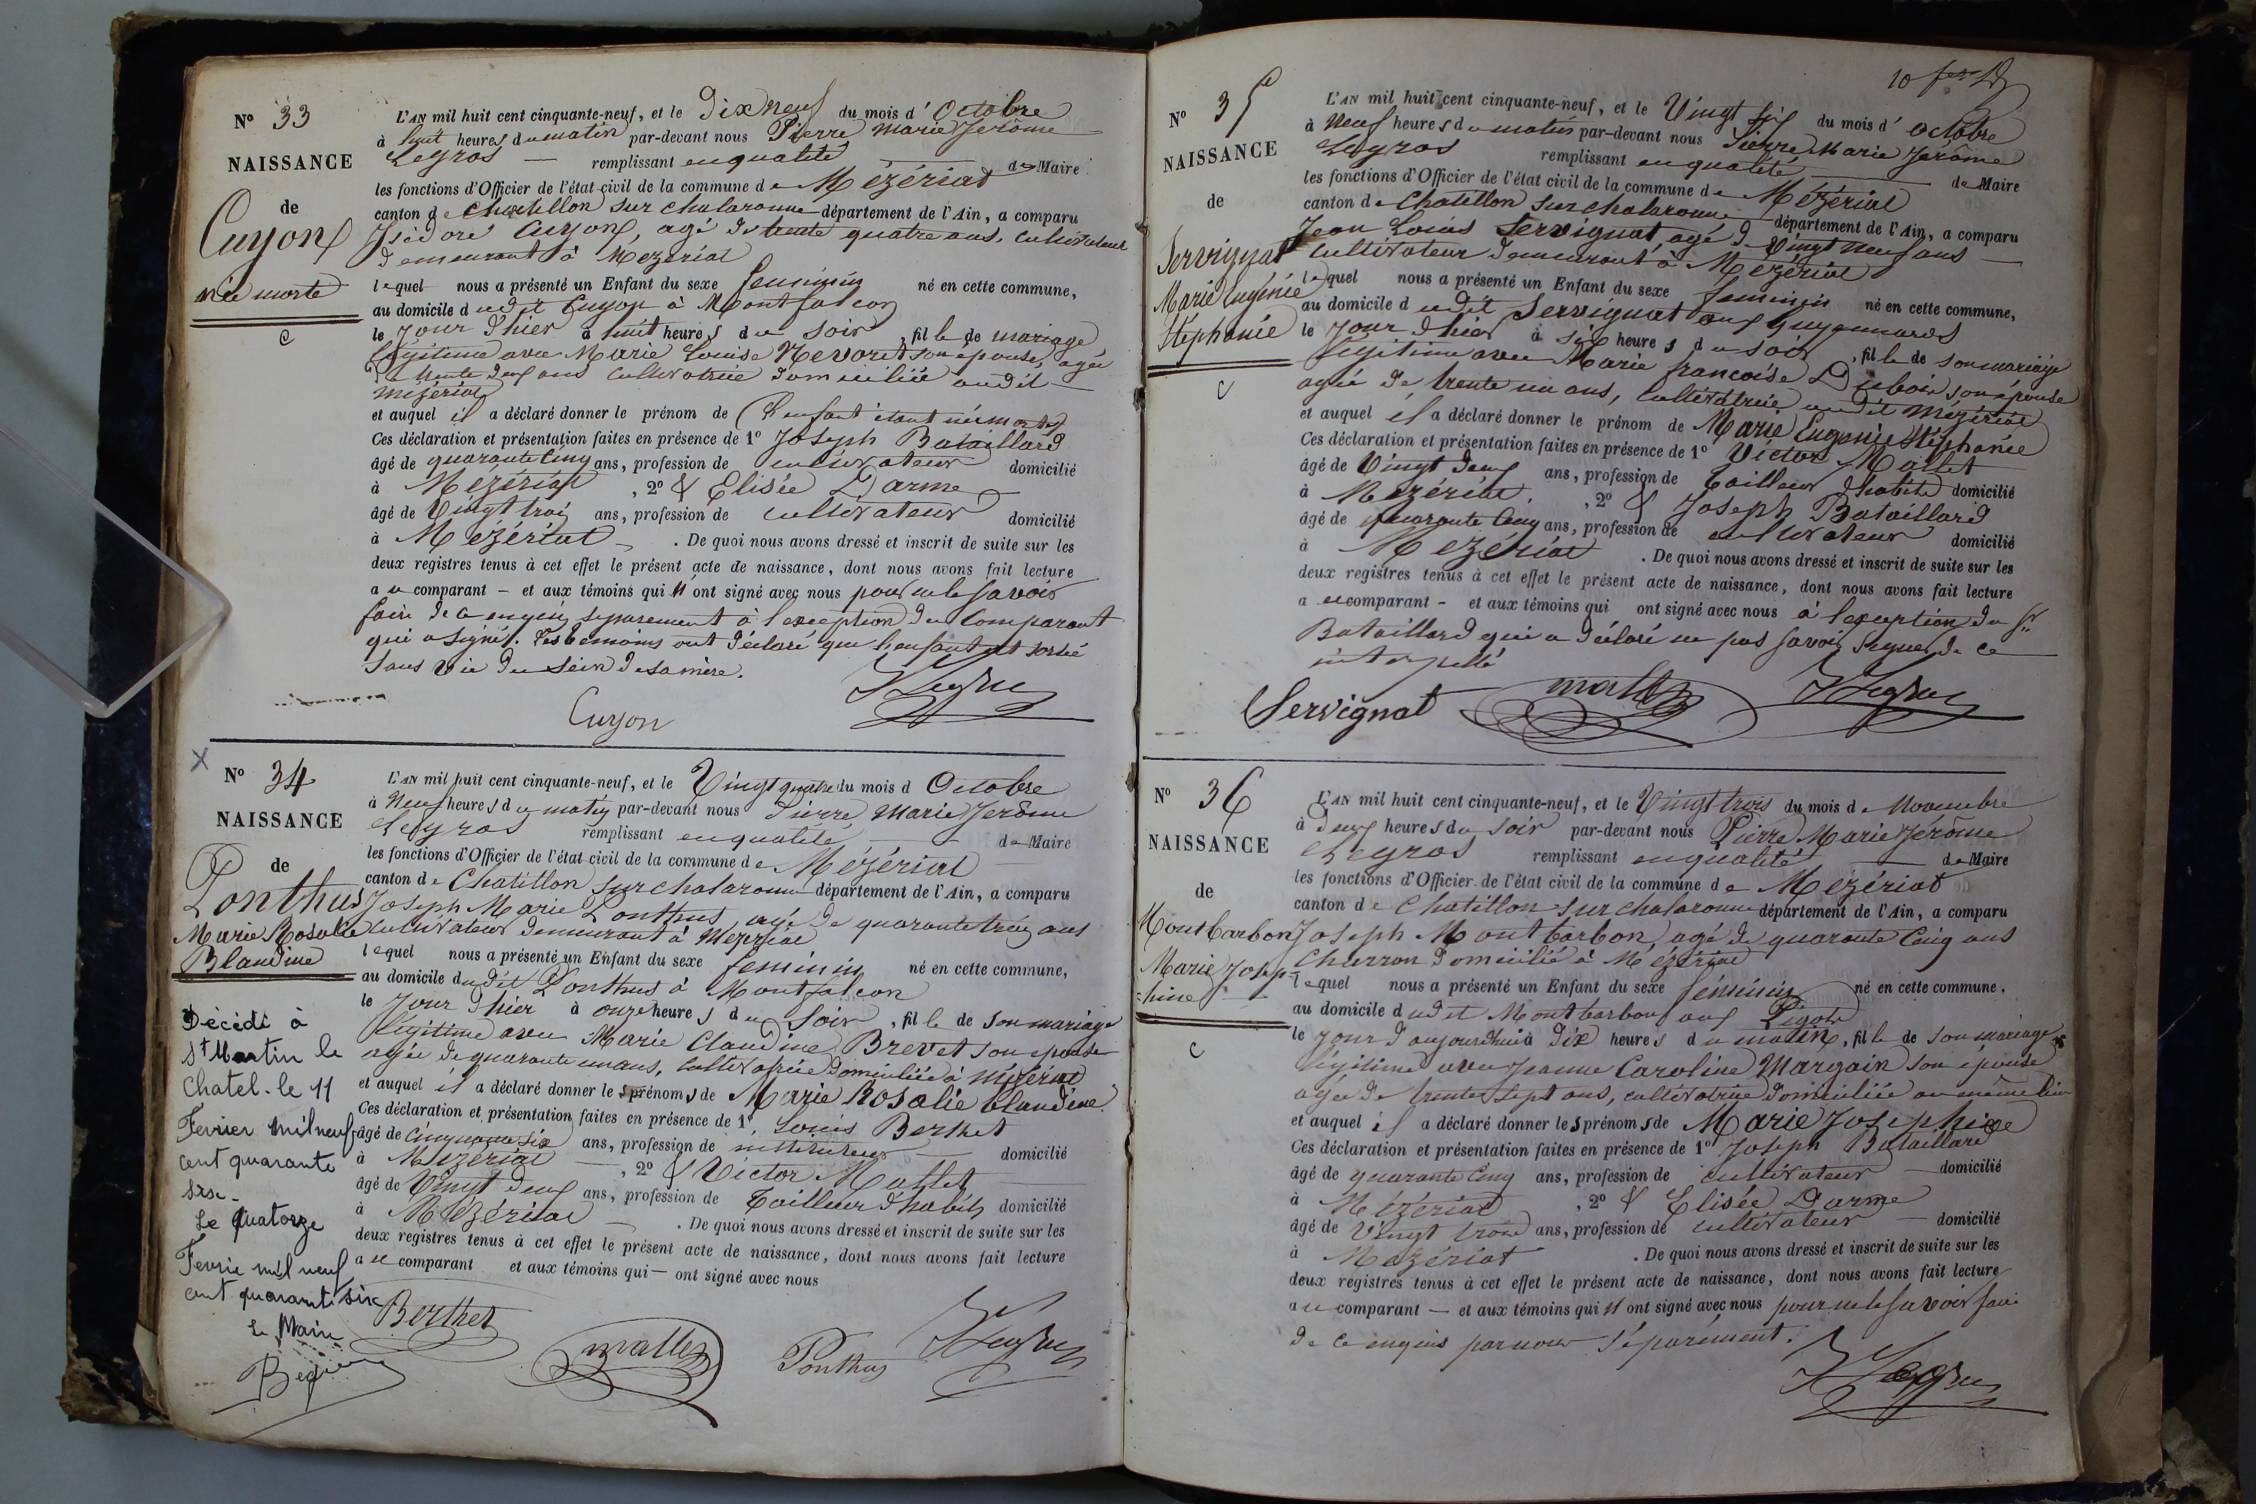 N° 33
NAISSANCE
de
Cuyon
née morte
L'AN mil huit cent cinquante-neuf, et le Dix neuf du mois d' Octobre
à huit heures du matin par-devant nous Pierre Marie Jerôme
Legros — remplissant en qualité de Maire
les fonctions d'Officier de l'état civil de la commune de Mézériat
canton de Chatillon sur chalaronne département de l'Ain, a comparu
Isidore Cuyon, agé de trente quatre ans, cultivateur
demeurant à Mézériat
lequel nous a présenté un Enfant du sexe feminin né en cette commune,
au domicile dudit Cuyon à Montfalcon
le jour d'hier à huit heures du soir, fille de mariage
légitime avec Marie Louise Nevoret son épouse, agée
de trente deux ans cultivatrice domiciliée audit
Mézériat
et auquel il a déclaré donner le prénom de (L'enfant étant née morte)
Ces déclaration et présentation faites en présence de 1° Joseph Bataillard
âgé de quarante cinq ans, profession de cultivateur domicilié
à Mézériat, 2° & Elisée Darme
âgé de Vingt trois ans, profession de cultivateur domicilié
à Mézériat — . De quoi nous avons dressé et inscrit de suite sur les
deux registres tenus à cet effet le présent acte de naissance, dont nous avons fait lecture
au comparant — et aux témoins qui n'ont signé avec nous pour ne le savoir
faire de ce enquis separement à l'exception du Comparant
qui a signé. Les temoins ont déclaré que l'enfant est sortie
sans vie du sein de sa mère.
Cuyon
N° 34
NAISSANCE
de
Ponthus
Marie Rosalie
Blandine
Décédé à
St Martin le
Chatel. le 11
Fevrier mil neuf
cent quarante
six -
Le quatorze
Fevrie mil neuf
cent quarante six
Le Maire
L'AN mil huit cent cinquante-neuf, et le Vingt quatre du mois d Octobre
à Neuf heures du matin par-devant nous Pierre Marie Jerôme
Legros remplissant en qualité de Maire
les fonctions d'Officier de l'état civil de la commune de Mézériat
canton de Chatillon sur chalaronne département de l'Ain, a comparu
Joseph Marie Ponthus, agé de quarante trois ans
cultivateur demeurant à Mézériat
lequel nous a présenté un Enfant du sexe feminin né en cette commune,
au domicile dudit Ponthus à Montfalcon
le jour d'hier à onze heures du soir, fille de son mariage
légitime avec Marie Claudine Brevet son épouse
agée de quarante un ans, cultivatrice domiciliée à Mézériat
et auquel il a déclaré donner les prénoms de Marie Rosalie blandine.
Ces déclaration et présentation faites en présence de 1° Louis Berthet
âgé de cinquante six ans, profession de instituteur domicilié
à Mézériat —, 2° & Victor Mallet
âgé de Vingt deux ans, profession de Tailleur d'habits domicilié
à Mézériat — . De quoi nous avons dressé et inscrit de suite sur les
deux registres tenus à cet effet le présent acte de naissance, dont nous avons fait lecture
au comparant et aux témoins qui — ont signé avec nous
Berthet
mallet
Ponthus
N° 35
NAISSANCE
de
Servignat
Marie Eugénie
Stéphanie
L'AN mil huit cent cinquante-neuf, et le Vingt six du mois d' octobre
à Neuf heures du matin par-devant nous Pierre Marie Jerôme
Legros remplissant en qualité de Maire
les fonctions d'Officier de l'état civil de la commune de Mézériat
canton de Chatillon sur chalaronne département de l'Ain, a comparu
Jean Louis Servignat, agé de Vingt neuf ans —
cultivateur demeurant à Mézériat
lequel nous a présenté un Enfant du sexe feminin né en cette commune,
au domicile dudit Servignat aux Guyonnards
le jour d'hier à six heures du soir, fille de son mariage
légitime avec Marie francoise Dubois son épouse
agée de trente un ans, cultivatrice audit Mézériat
et auquel il a déclaré donner le prénom de Marie Eugenie Stéphanie
Ces déclaration et présentation faites en présence de 1° Victor Mallet
âgé de Vingt deux ans, profession de Tailleur d'habits domicilié
à Mézériat, 2° & Joseph Bataillard
âgé de quarante cinq ans, profession de cultivateur domicilié
à Mézériat . De quoi nous avons dressé et inscrit de suite sur les
deux registres tenus à cet effet le présent acte de naissance, dont nous avons fait lecture
au comparant - et aux témoins qui ont signé avec nous à l'exception du Sr
Bataillard qui a déclaré ne pas savoir signer de ce
interpellé
Servignat
mallet
N° 36
NAISSANCE
de
Montbarbon
Marie Josep-
=hine
L'AN mil huit cent cinquante-neuf, et le Vingt trois du mois de Novembre
à deux heures du soir par-devant nous Pierre Marie Jérôme
Legros remplissant en qualité de Maire
les fonctions d'Officier de l'état civil de la commune de Mézériat
canton de Chatillon sur chalaronne département de l'Ain, a comparu
Joseph Montbarbon, agé de quarante cinq ans
Charron domicilié à Mézériat
lequel nous a présenté un Enfant du sexe féminin né en cette commune,
au domicile dudit Montbarbon aux
le jour d'aujourd'hui à Dix heures du matin, fille de son mariage
légitime avec Jeanne Caroline Margain son épouse
agée de trente sept ans, cultivatrice domiciliée au même lieu
et auquel il a déclaré donner les prénoms de Marie Josephine
Ces déclaration et présentation faites en présence de 1° Joseph Bataillard
âgé de quarante cinq ans, profession de cultivateur domicilié
à Mézériat, 2° & Elisée Darme
âgé de Vingt trois ans, profession de cultivateur — domicilié
à Mézériat . De quoi nous avons dressé et inscrit de suite sur les
deux registres tenus à cet effet le présent acte de naissance, dont nous avons fait lecture
au comparant — et aux témoins qui n'ont signé avec nous pour ne le savoir faire
de ce enquis par nous séparément.